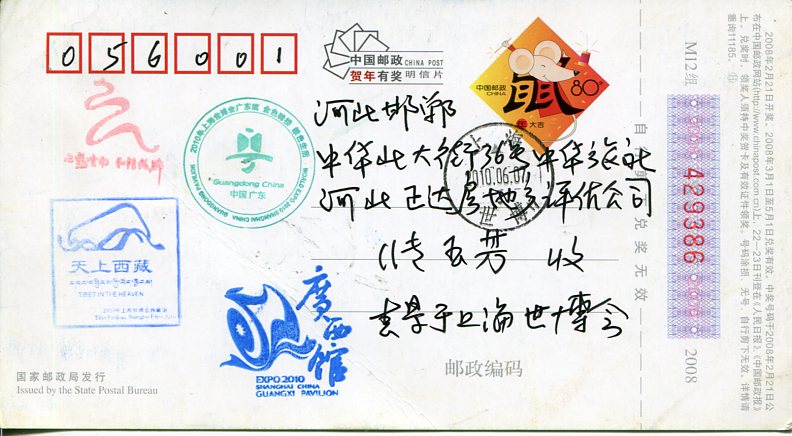 056001
中国邮政 CHINA POST
贺年有奖 明信片
中国邮政
CHINA
鼠
80分
大吉
河北邯郸
中华北大街36号中华旅社
河北正达房地产评估公司
玉芳 收
于上海世博会
2010.06.07
2010年上海世博会广东馆
WORLD EXPO 2010 SHANGHAI CHINA
GUANGDONG PAVILION
Guangdong China
中国广东
天上西藏
TIBET IN THE HEAVEN
2010年上海世博会西藏馆
廣西館
EXPO 2010
SHANGHAI CHINA
GUANGXI PAVILION
邮政编码
国家邮政局发行
Issued by the State Postal Bureau
自行剪下兑奖无效
M12组
429386
2008
2008年2月21日开奖。2008年3月1日至5月1日兑奖有效。中奖号码于2008年2月21日公
布在中国邮政网站(http://www.chinapost.com.cn)上，22—23日刊登在《人民日报》、《中国邮政报》
上。兑奖时，领奖人须持中奖贺卡及有效证件领奖。号码涂损、无号、自行剪下无效。详情请
垂询11185。